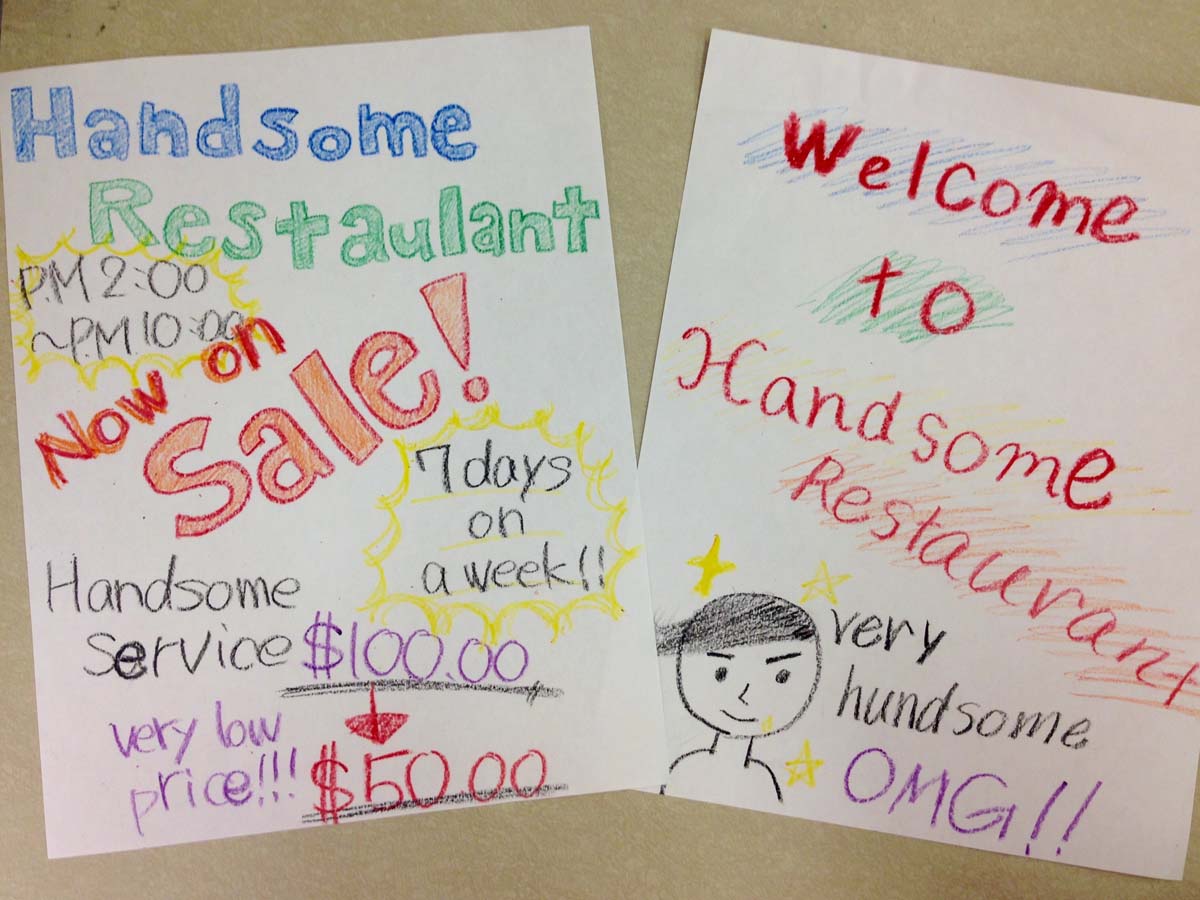 Handsome
Restaulant
P.M 2:00
~P.M 10:00
Now on
Sale!
7 days
on
a week!!
Handsome
service $100.00
very low
price!!! $50.00
Welcome
to
Handsome
Restaurant
very
hundsome
OMG!!